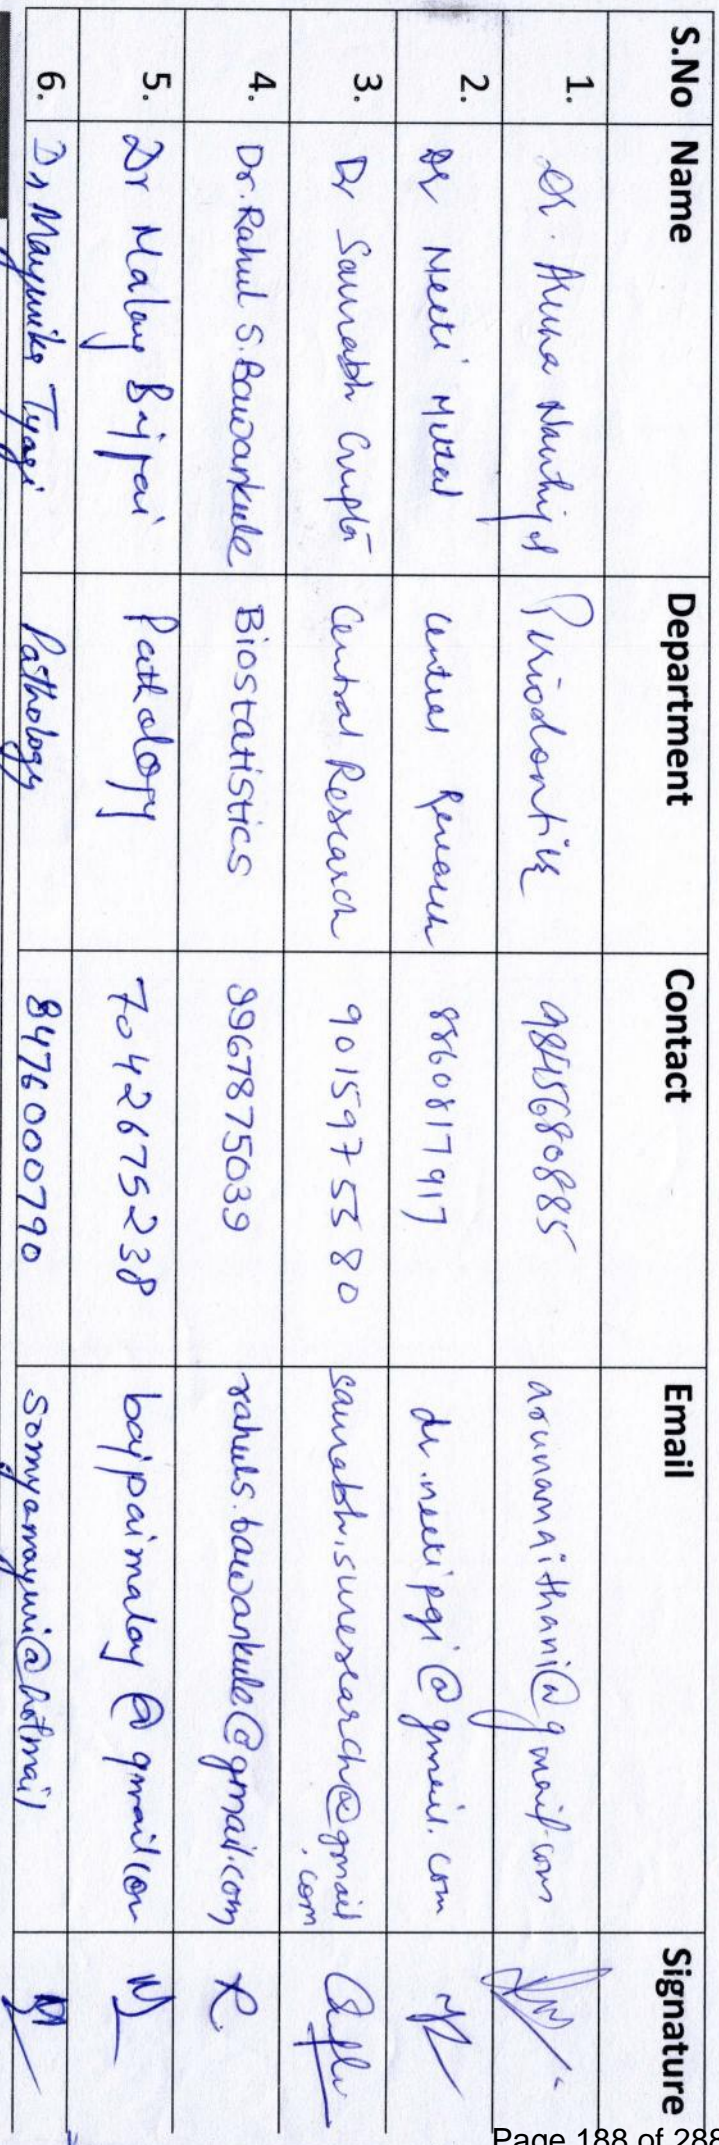 S.No Name Department Contact Email Signature
1. Dr. Aruna Nautiyal Periodontics 9845680885 arunanaithani@gmail.com
2. Dr Neeti Mittal Central Research 8860817917 dr.neetipgi@gmail.com
3. Dr Saurabh Gupta Central Research 9015975580 saurabh.suresearch@gmail
.com
4. Dr. Rahul S. Bawankule Biostatistics 9967875039 rahuls.bawankule@gmail.com
5. Dr Malay Bajpai Pathology 7042675238 bajpaimalay@gmail.com
6. Dr Mayurika Tyagi Pathology 8476000790 somyamayuri@hotmail
Page 188 of 288